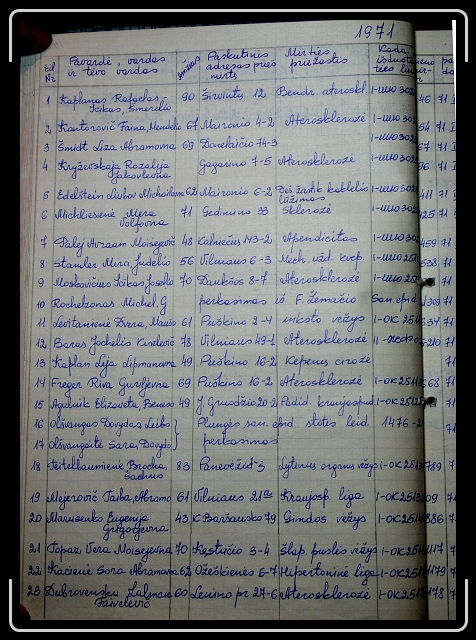 1971
Eil Nr. Pavardė, vardas ir tėvo vardas Amžius Paskutinis adresas prieš mirtį Mirties priežastis Kada
1 Kaplanas Rafaelas- Icikas, Šmerelio 90 Širvintų 12 Bendr. aterosk. 46 71
2 Kantorovič Faina, Mendelio 67 Maironio 4-2 Aterosklerozė 54 71
3 Šmidt Liza Abramovna 69 Donelaičio 74-3 67 71
4 Kryževskaja Rozalija Jakovlevna Gagarino 7-5 Aterosklerozė 96 71
5 Edelštein Liubov Michailovna 62 Maironio 6-2 Deš. žastik. kaklelio lūžimas 411 71
6 Michlienė Mera Volfovna 71 Gedimino 33 Sklerozė 425 71
7 Palej Avraam Moisejevič 48 Kalniečių 173-2 Apendicitas 459 71
8 Stamler Mira Judelio 56 Vilniaus 6-3 Mech. užd. kvėp. 638 71
9 Moskovičius Icikas Joselio 70 Daukšos 8-7 Aterosklerozė 71
10 Rochelzonas Michel. G perkasimas iš F. Žemaičio San. epid. 309 71
11 Levitanienė Dvera, 61 Puškino 2-4 inksto vėžys 1-OK 251 334 71
12 Boras Jochelis Kiselevič 78 Vilniaus 49-1 Aterosklerozė 210 71
13 Kaplan Lija Lipmanovna 49 Puškino 16-2 Kepenų cirozė 71
14 Freger Riva Gurijevna 69 Puškino 16-2 Aterosklerozė 1-OK 251 68 71
15 Agulnik Elizaveta, 49 J. Gruodžio 20-2 Padid. kraujospūd. 1-OK 251 71
16 Olšvangas Dovydas Leibo Plungės san. epid stotis leid. 1476 71
17 Olšvangaitė Sara, Dovydo perkasimas 71
18 Feitelbaumienė Brocha, 83 Panevėžio 3 Lytinių organų vėžys 1-OK 251 789 71
19 Mejerovič Taiba, Abramo 61 Vilniaus 21a Kraujosp. liga 1-OK 251 809 71
20 Marusenko Eugenija Grigorjevna 43 K. Baršausko 79 Gimdos vėžys 1-OK 251 886 71
21 Topaz Vera Moisejevna 70 Kęstučio 3-4 Šlap. puslės vėžys 1-OK 251 1117 71
22 Kacienė Sora Abramovna 62 Ožeškienės 6-7 Hipertoninė liga 1-OK 251 1179 71
23 Dubrovenskij Zalman Faivelevič 60 Lenino pr 27-6 Aterosklerozė 1-OK 251 178 71